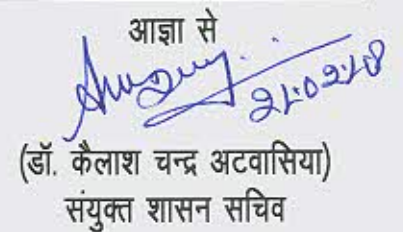 आज्ञा से
21.02.18
(डॉ. कैलाश चन्द्र अटवासिया)
संयुक्त शासन सचिव